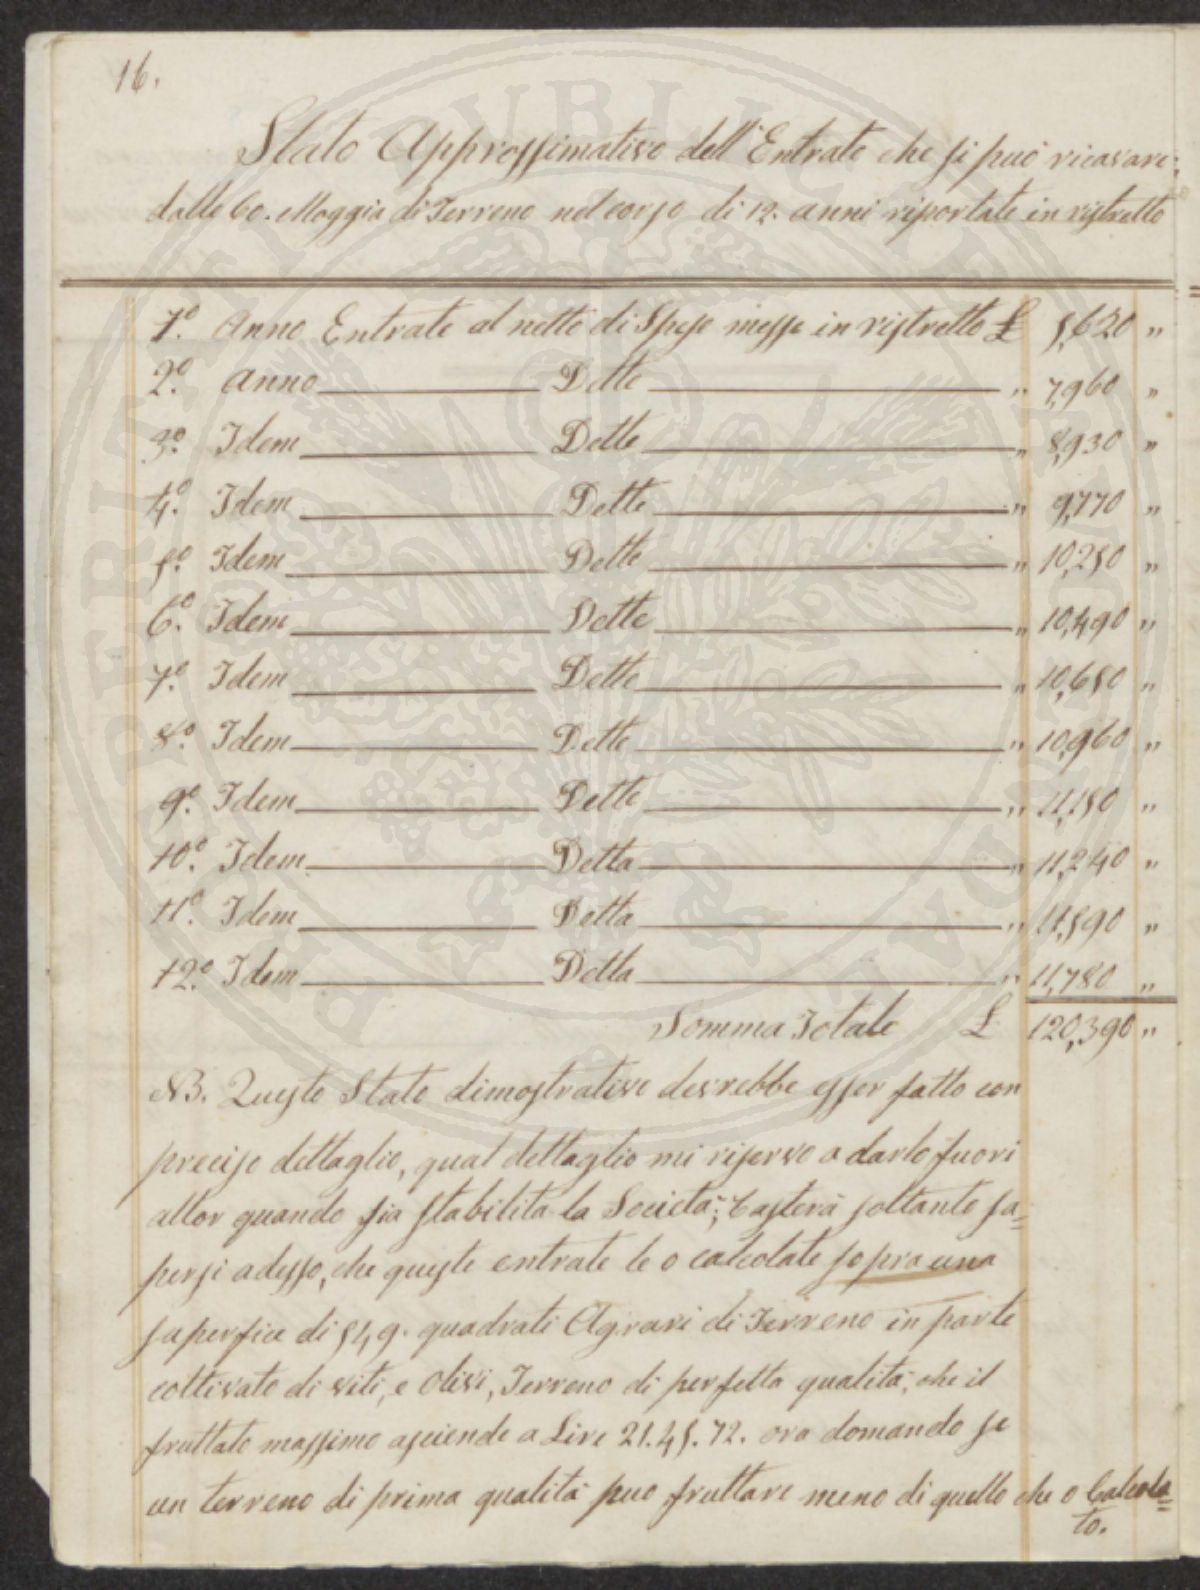 16.
Stato Approssimativo dell'Entrate che si può ricavare
dalle 60. Moggia di Terreno nel corso di 12. anni riportate in ristretto
1º. Anno Entrate al netto di Spese messe in ristretto £ 5,620 "
2º. Anno Dette " 7,960 "
3º. Idem Dette " 8,930 "
4º. Idem Dette " 9,770 "
5º. Idem Dette " 10,250 "
6º. Idem Dette " 10,490 "
7º. Idem Dette " 10,650 "
8º. Idem Dette " 10,960 "
9º. Idem Dette " 11,150 "
10º. Idem Detta " 11,240 "
11º. Idem Detta " 11,590 "
12º. Idem Detta " 11,780 "
Somma Totale £ 120,390 "
NB. Questo Stato dimostrativo dovrebbe esser fatto con
preciso dettaglio, qual dettaglio mi riservo a darlo fuori
allor quando sia stabilita la Società; basterà soltanto sa=
persi adesso, che queste entrate le o calcolate sopra una
superfice di 549. quadrati Agrari di Terreno in parte
coltivato di viti, e Olivi, Terreno di perfetta qualità, che il
fruttato massimo asciende a Lire 21.45.72. ora domando se
un terreno di prima qualità puo fruttare meno di quello che o Calcola=
to.